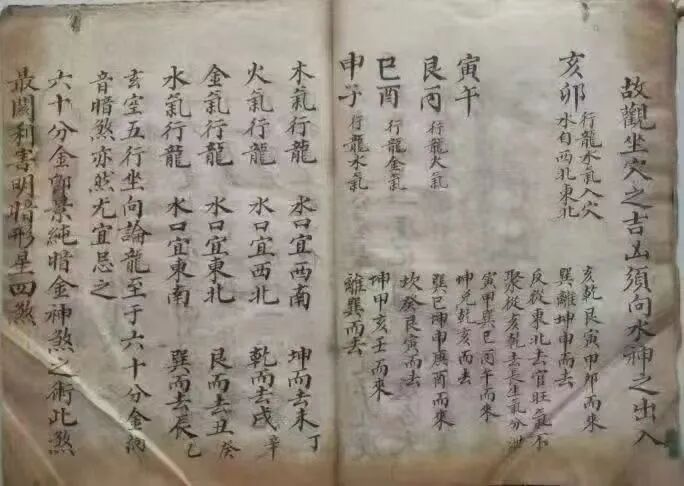 故觀坐穴之吉凶須向水神之出入
亥卯 行龍水氣入穴
水自西北東北
亥乾艮寅甲卯而來
巽離坤申而去
反從東北去官旺氣不
聚從亥乾去長生氣分洩
寅午
艮丙 行龍火氣
寅甲巽巳丙午而來
坤兌乾亥而去
巳酉 行龍金氣
巽巳坤申庚酉而來
坎癸艮寅而去
申子 行龍水氣
坤申亥壬而來
離巽而去
木氣行龍 水口宜西南 坤而去未丁
火氣行龍 水口宜西北 乾而去戌辛
金氣行龍 水口宜東北 艮而去丑癸
水氣行龍 水口宜東南 巽而去辰乙
玄空五行坐向論龍至于六十分金納
音暗煞亦然尤宜忌之
六十分金郭景純暗金神煞之術此煞
最關利害明暗形星四煞